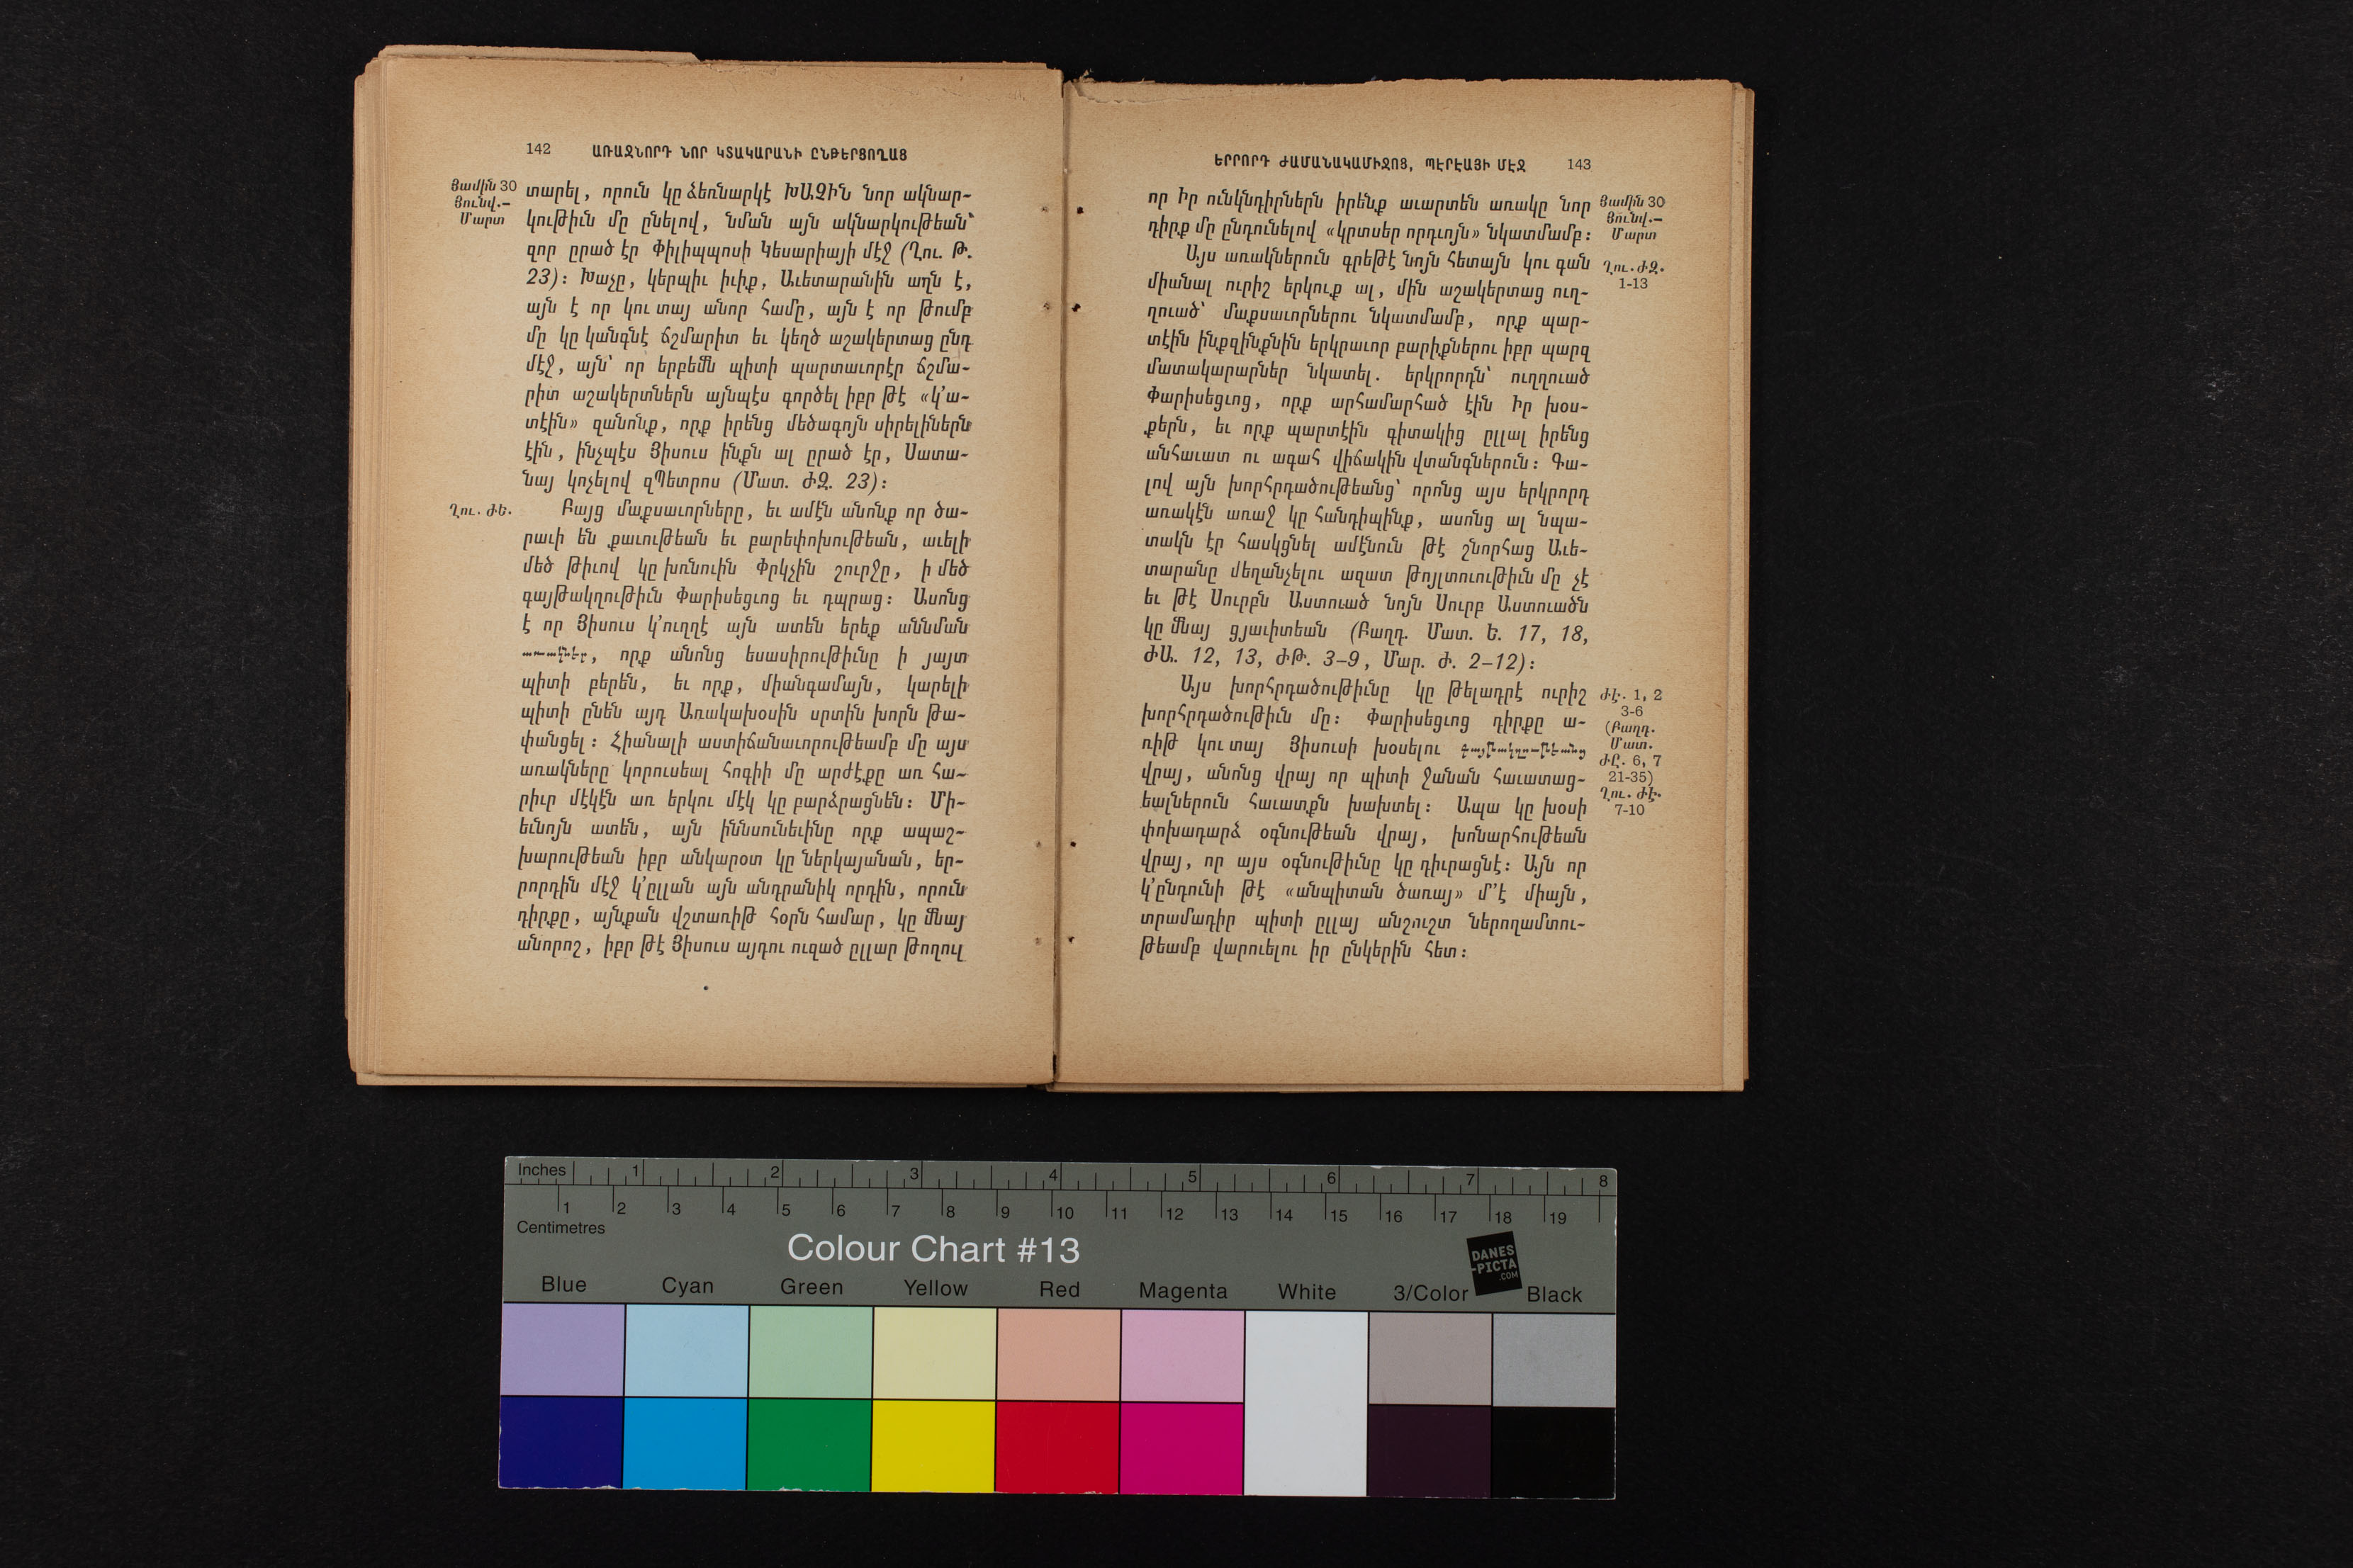 142 ԱՌԱՋՆՈՐԴ ՆՈՐ ԿՏԱԿԱՐԱՆԻ ԸՆԹԵՐՑՈՂԱՑ
Յամին 30
Յունվ.–
Մարտ
տարել, որուն կը ձեռնարկէ ԽԱՉԻՆ նոր ակնար–
կութիւն մը ընելով, նման այն ակնարկութեան՝
զոր ըրած էր Փիլիպպոսի Կեսարիայի մէջ (Ղու. Թ.
23)։ Խաչը, կերպիւ իւիք, Աւետարանին աղն է,
այն է որ կու տայ անոր համը, այն է որ թումբ
մը կը կանգնէ ճշմարիտ եւ կեղծ աշակերտաց ընդ
մէջ, այն՝ որ երբեմն պիտի պարտաւորէր ճշմա–
րիտ աշակերտներն այնպէս գործել իբր թէ «կ՚ա–
տէին» զանոնք, որք իրենց մեծագոյն սիրելիներն
էին, ինչպէս Յիսուս ինքն ալ ըրած էր, Սատա–
նայ կոչելով զՊետրոս (Մատ. ԺԶ. 23)։
Ղու. ԺԵ.
Բայց մաքսաւորները, եւ ամէն անոնք որ ծա–
րաւի են քաւութեան եւ բարեփոխութեան, աւելի
մեծ թիւով կը խռնուին Փրկչին շուրջը, ի մեծ
գայթակղութիւն Փարիսեցւոց եւ դպրաց։ Ասոնց
է որ Յիսուս կ՚ուղղէ այն ատեն երեք աննման
առակներ, որք անոնց եսասիրութիւնը ի յայտ
պիտի բերեն, եւ որք, միանգամայն, կարելի
պիտի ընեն այդ Առակախօսին սրտին խորն թա–
փանցել։ Հիանալի աստիճանաւորութեամբ մը այս
առակները կորուսեալ հոգիի մը արժէքը առ հա–
րիւր մէկէն առ երկու մէկ կը բարձրացնեն։ Մի–
եւնոյն ատեն, այն իննսունեւինը որք ապաշ–
խարութեան իբր անկարօտ կը ներկայանան, եր–
րորդին մէջ կ՚ըլլան այն անդրանիկ որդին, որուն
դիրքը, այնքան վշտառիթ հօրն համար, կը մնայ
անորոշ, իբր թէ Յիսուս այդու ուզած ըլլար թողուլ
ԵՐՐՈՐԴ ԺԱՄԱՆԱԿԱՄԻՋՈՑ, ՊԷՐԷԱՅԻ ՄԷՋ 143
որ Իր ունկնդիրներն իրենք աւարտեն առակը նոր
դիրք մը ընդունելով «կրտսեր որդւոյն» նկատմամբ։
Յամին 30
Յունվ.–
Մարտ
Այս առակներուն գրեթէ նոյն հետայն կու գան
միանալ ուրիշ երկուք ալ, մին աշակերտաց ուղ–
ղուած՝ մաքսաւորներու նկատմամբ, որք պար–
տէին ինքզինքնին երկրաւոր բարիքներու իբր պարզ
մատակարարներ նկատել. երկրորդն՝ ուղղուած
Փարիսեցւոց, որք արհամարհած էին Իր խօս–
քերն, եւ որք պարտէին գիտակից ըլլալ իրենց
անհաւատ ու ագահ վիճակին վտանգներուն։ Գա–
լով այն խորհրդածութեանց՝ որոնց այս երկրորդ
առակէն առաջ կը հանդիպինք, ասոնց ալ նպա–
տակն էր հասկցնել ամէնուն թէ շնորհաց Աւե–
տարանը մեղանչելու ազատ թոյլտուութիւն մը չէ
եւ թէ Սուրբն Աստուած նոյն Սուրբ Աստուածն
կը մնայ ցյաւիտեան (Բաղդ. Մատ. Ե. 17, 18,
ԺԱ. 12, 13, ԺԹ. 3–9, Մար. Ժ. 2–12)։
Ղու. ԺԶ.
1-13
Այս խորհրդածութիւնը կը թելադրէ ուրիշ
խորհրդածութիւն մը։ Փարիսեցւոց դիրքը ա–
ռիթ կու տայ Յիսուսի խօսելու գայթակղութեանց
վրայ, անոնց վրայ որ պիտի ջանան հաւատաց–
եալներուն հաւատքն խախտել։ Ապա կը խօսի
փոխադարձ օգնութեան վրայ, խոնարհութեան
վրայ, որ այս օգնութիւնը կը դիւրացնէ։ Այն որ
կ՚ընդունի թէ «անպիտան ծառայ» մ՚՚է միայն,
տրամադիր պիտի ըլլայ անշուշտ ներողամտու–
թեամբ վարուելու իր ընկերին հետ։
ԺԷ. 1, 2
3-6
(Բաղդ.
Մատ.
ԺԸ. 6, 7
21-35)
Ղու. ԺԷ.
7-10
Inches 1 2 3 4 5 6 7 8
1 2 3 4 5 6 7 8 9 10 11 12 13 14 15 16 17 18 19
Centimetres
Colour Chart #13
DANES
-PICTA
.COM
Blue Cyan Green Yellow Red Magenta White 3/Color Black